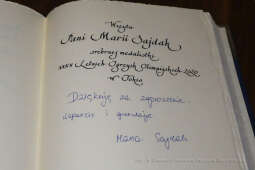 Wizyta
Pani Marii Sajdak
srebrnej medalistki
XXXII Letnich Igrzysk Olimpijskich 2020
w Tokio
Dziękuję za zaproszenie
wsparcie i gratulacje
Maria Sajdak